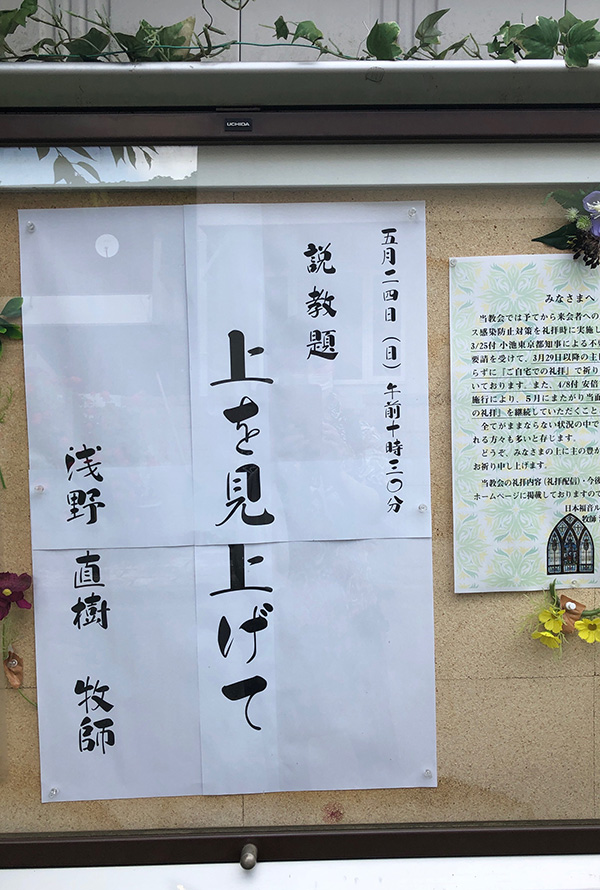 UCHIDA
五月二四日（日）午前十時三〇分
説教題
上を見上げて
浅野 直樹 牧師
みなさまへ
当教会では予てから来会者への
ス感染防止対策を礼拝時に実施し
3/25付 小池東京都知事による不
要請を受けて、3月29日以降の主
らずに「ご自宅での礼拝」で祈り
いております。また、4/8付 安倍
施行により、5月にまたがり当面
の礼拝」を継続していただくこと
全てがままならない状況の中で
れる方々も多いと存じます。
どうぞ、みなさまの上に主の豊か
お祈り申し上げます。
当教会の礼拝内容（礼拝配信）・今後
ホームページに掲載しておりますので
日本福音ル
牧師